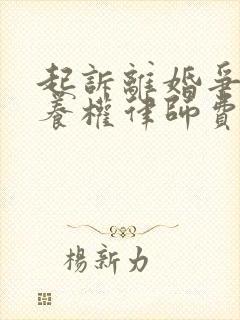 起訴離婚爭
養權律師費
楊新力